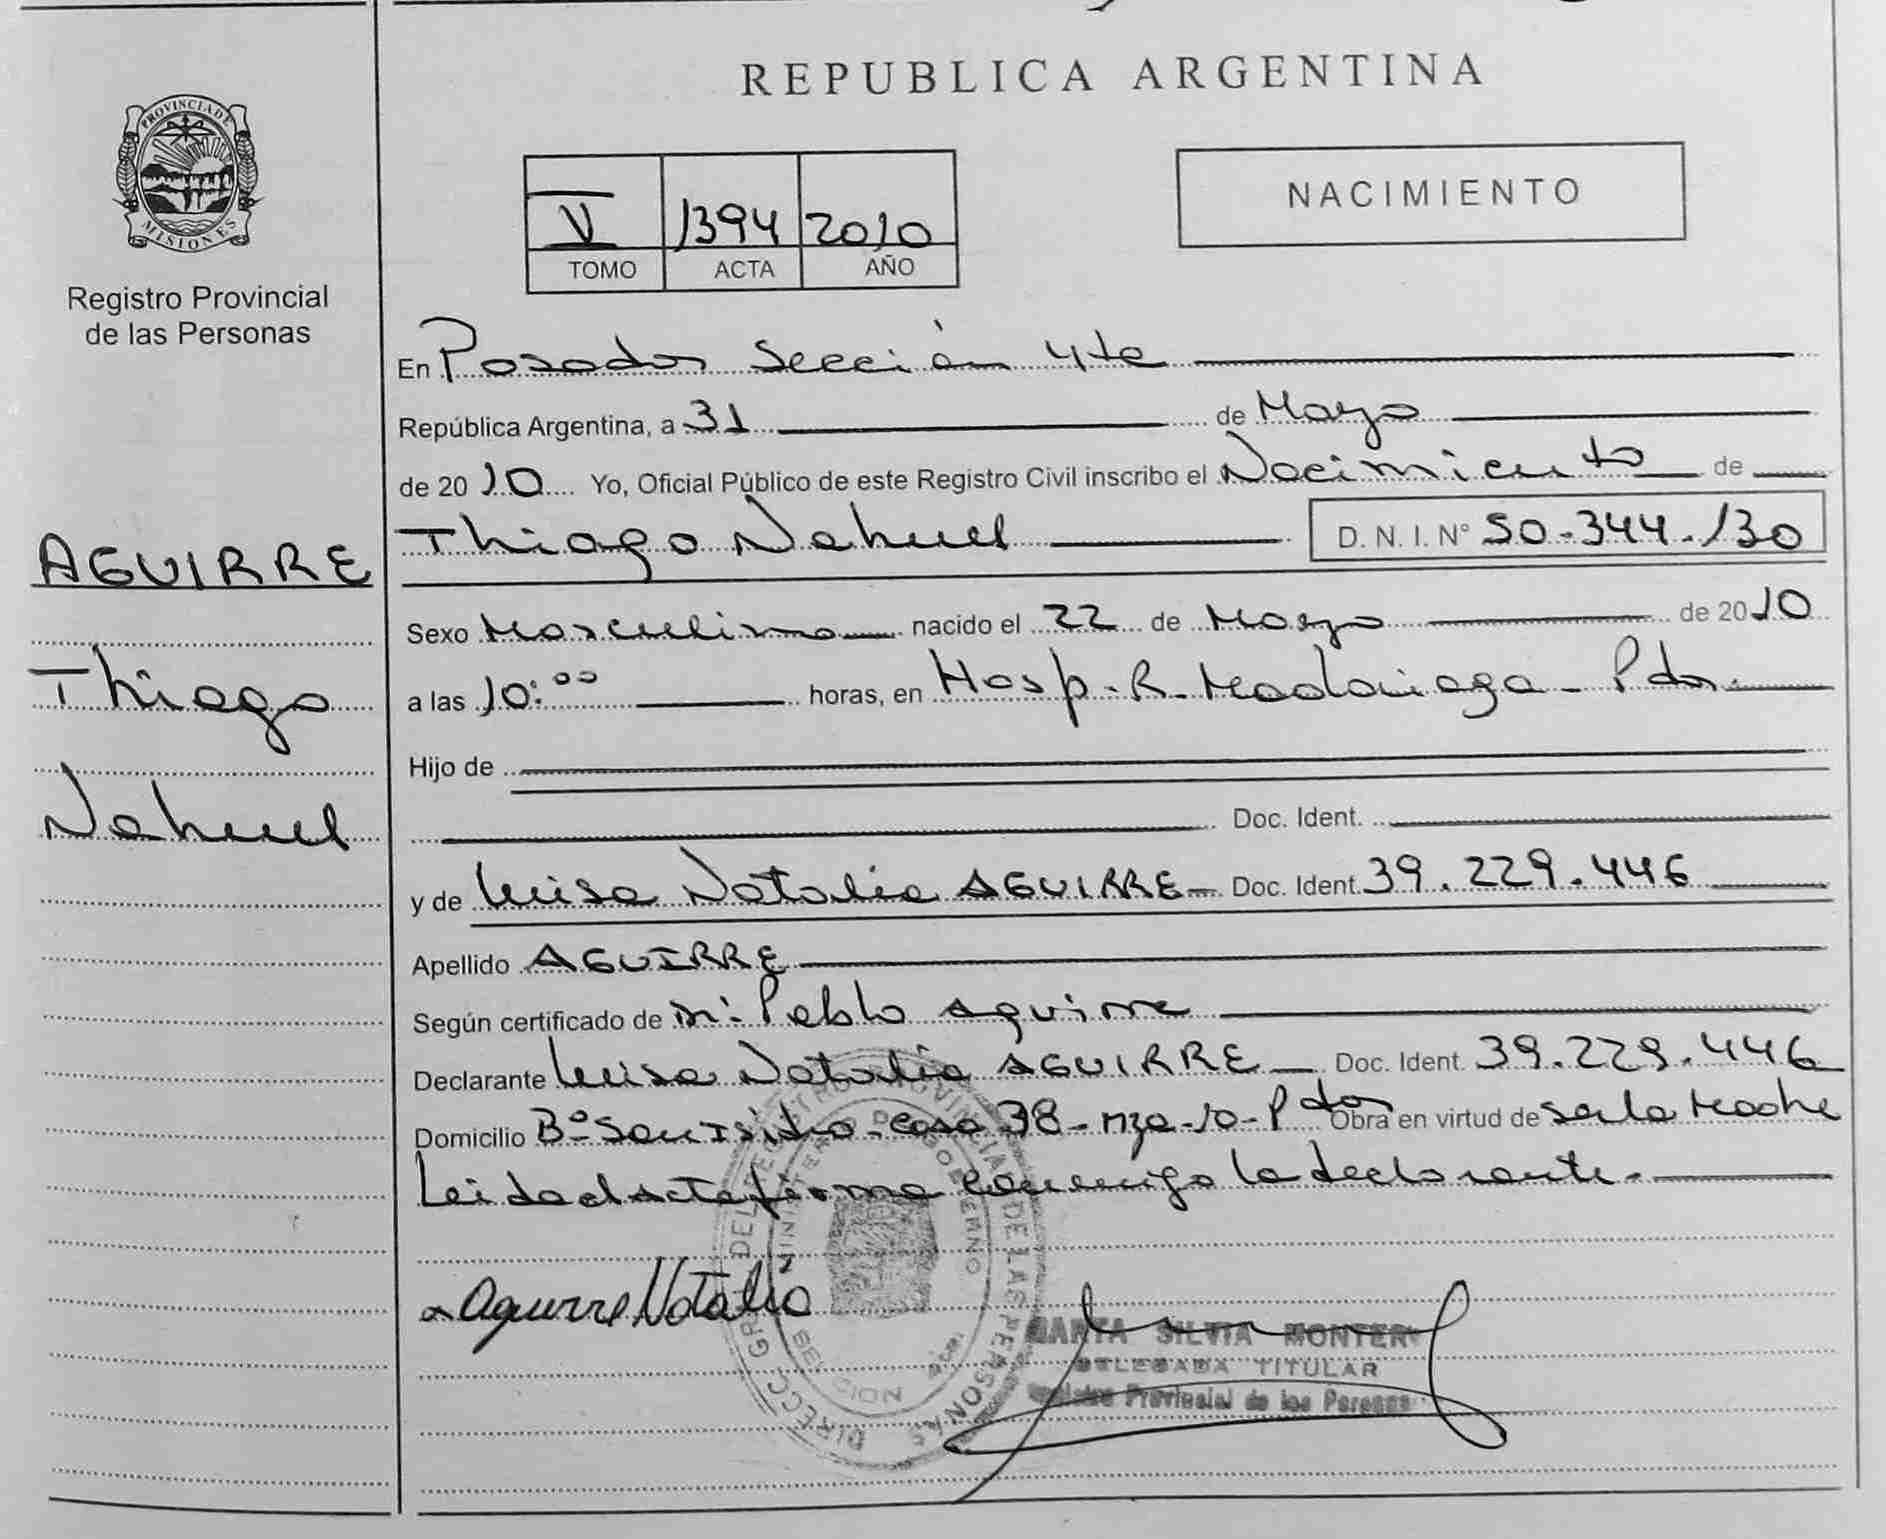 REPUBLICA ARGENTINA
PROVINCIA DE
MISIONES
Registro Provincial
de las Personas
V 1394 2010
TOMO ACTA AÑO
NACIMIENTO
En Posadas Sección 4ta
República Argentina, a 31 de Mayo
de 2010 Yo, Oficial Público de este Registro Civil inscribo el Nacimiento de
Thiago Nahuel D. N. I. Nº 50.344.130
AGUIRRE
Thiago
Nahuel
Sexo Masculino nacido el 22 de Mayo de 2010
a las 10:00 horas, en Hosp. R. Madariaga - Pdas.
Hijo de
Doc. Ident.
y de Luisa Natalia AGUIRRE Doc. Ident. 39.229.446
Apellido AGUIRRE
Según certificado de Pablo Aguirre
Declarante Luisa Natalia AGUIRRE Doc. Ident. 39.229.446
Domicilio Bº San Isidro - casa 38 - mza - 10 - Pdas Obra en virtud de ser la Madre
Leida el Acta firma conmigo la declarante.
Aguirre Natalia
MARTA SILVIA MONTER
DELEGADA TITULAR
Registro Provincial de las Personas